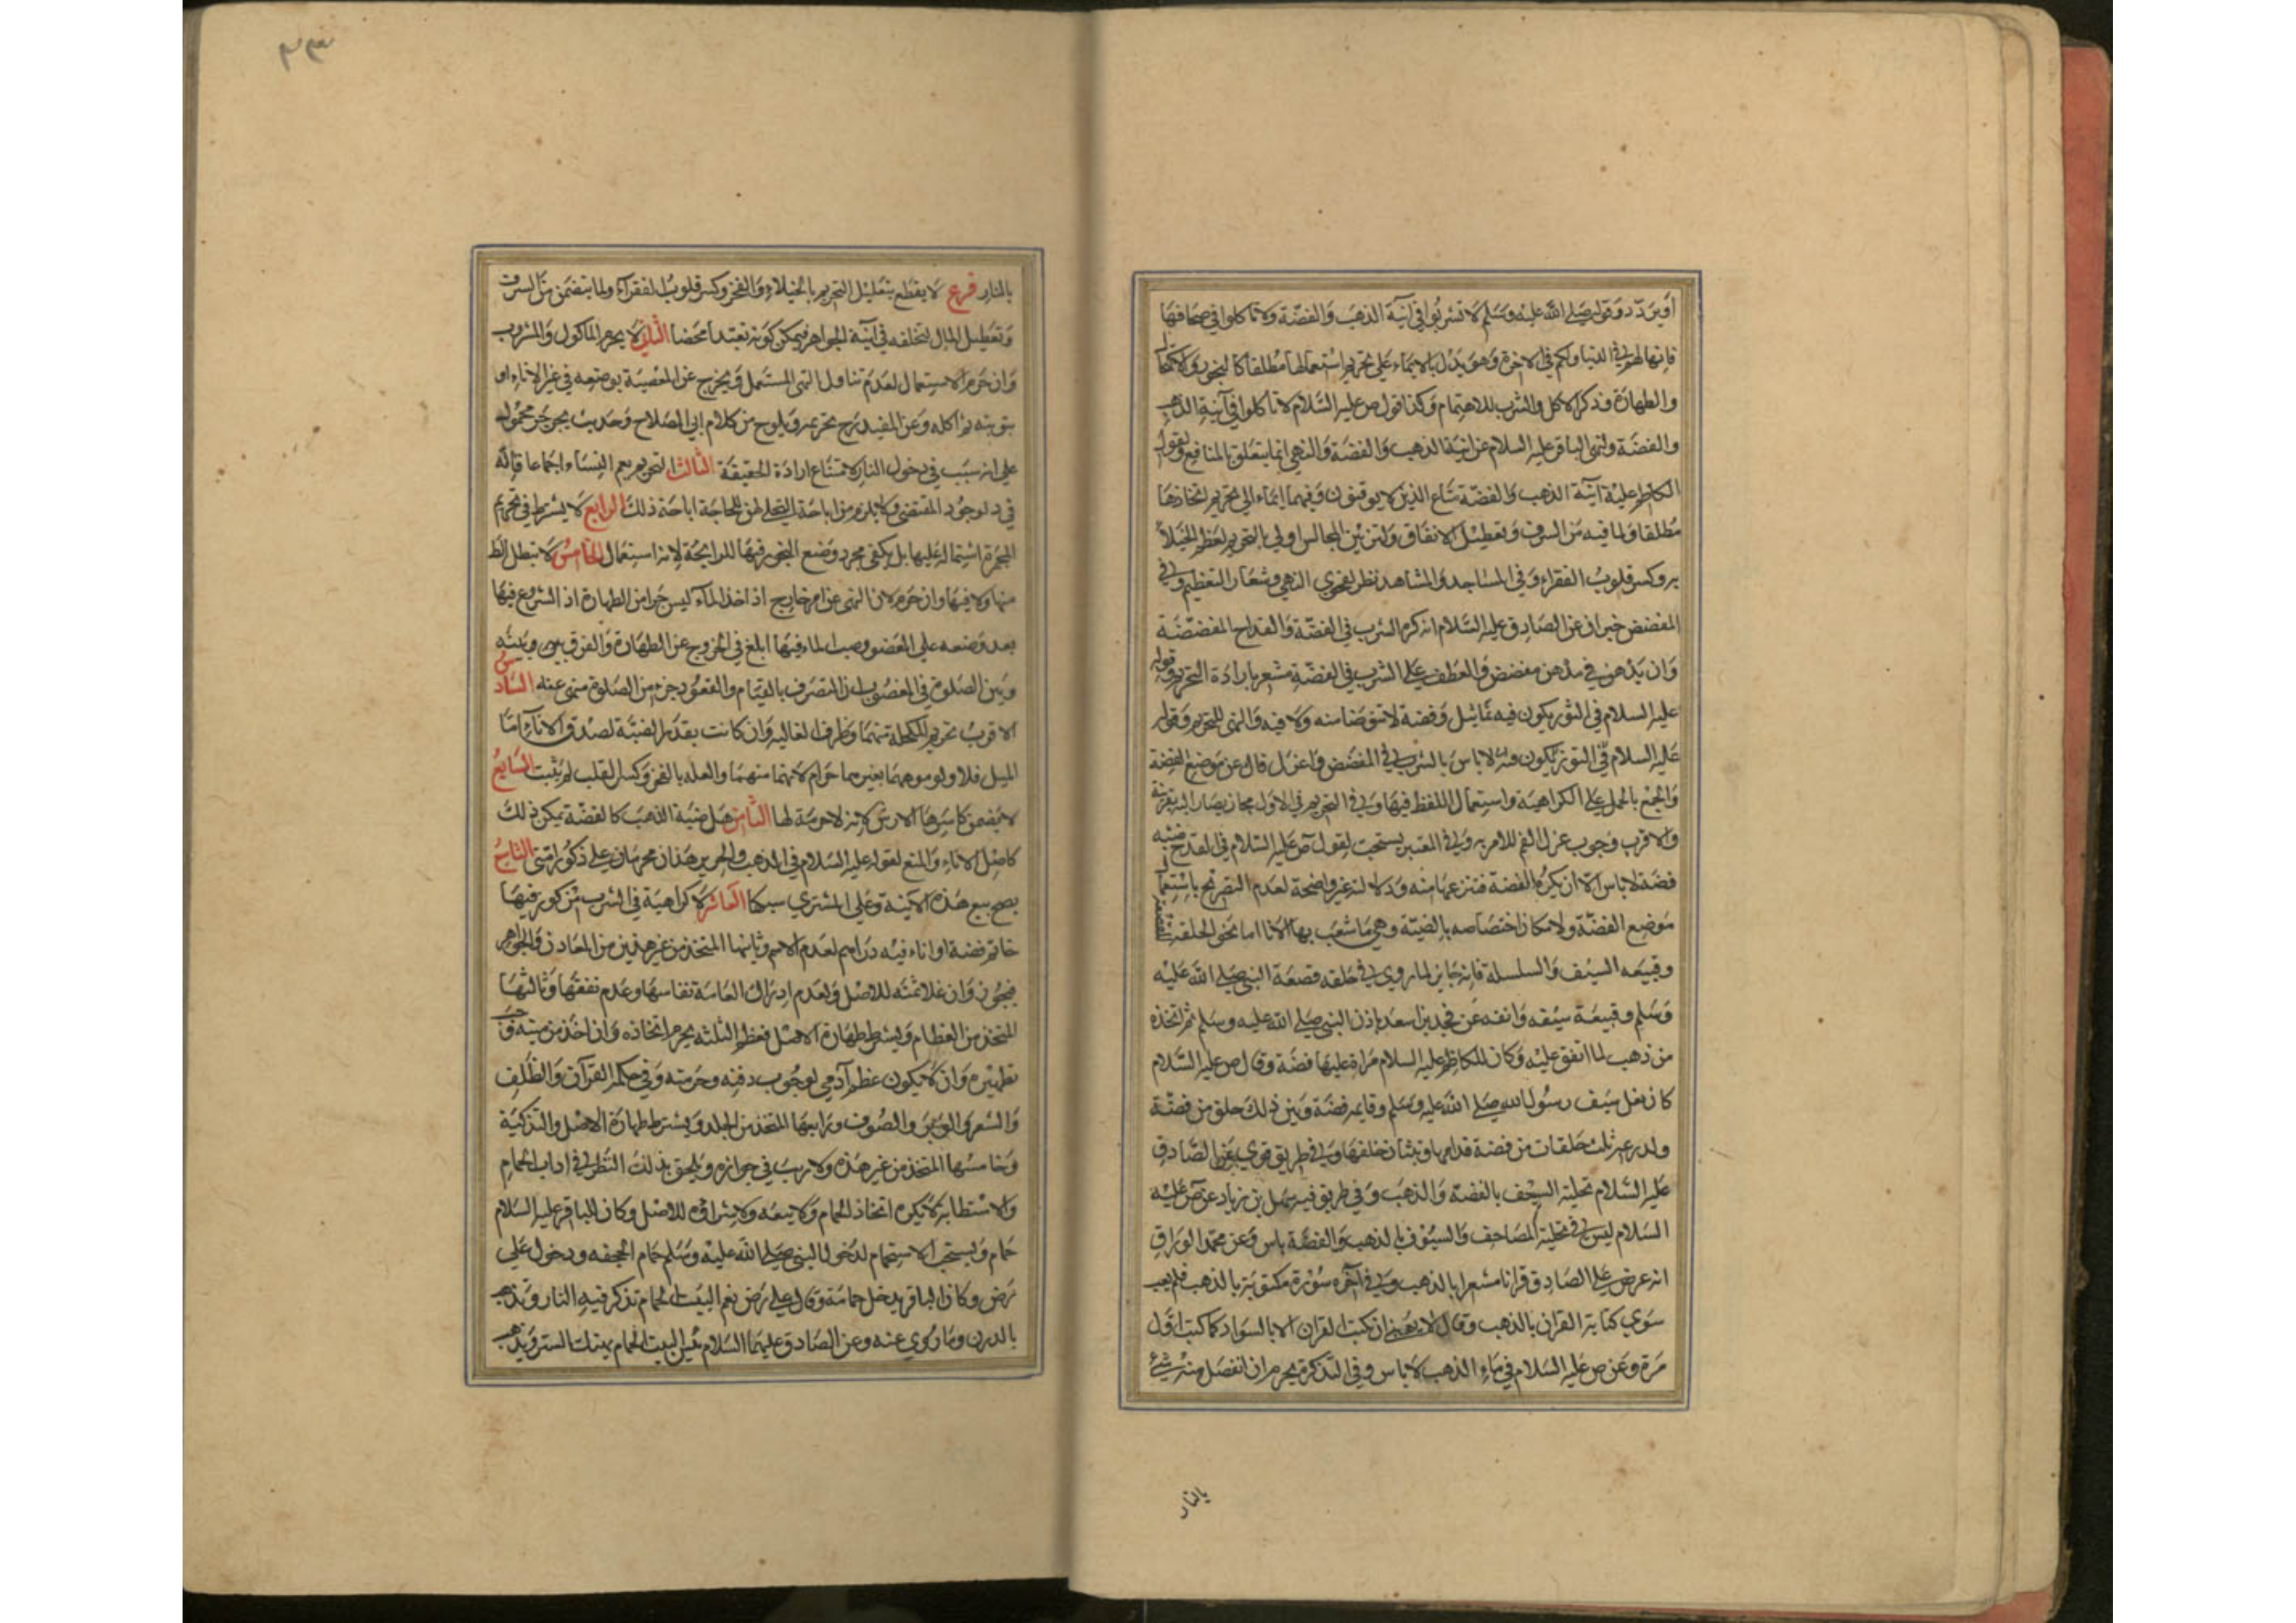 او يزدد وقوله صلى الله عليه وسلم لا تشربوا في آنية الذهب والفضة ولا تاكلوا في صحافها
فانها لهم في الدنيا ولكم في الاخرة وهو يدل بالايماء على تحريم استعمالها مطلقا كالبخور والاكتحال
والطهارة وذكر الاكل والشرب للاهتمام وكذا قول ص عليه السلام لا تاكلوا في آنية الذهب
والفضة ولنهي الباقر عليه السلام عن آنية الذهب والفضة والنهي انما يتعلق بالمنافع ولقول
الكاظم عليه آنية الذهب والفضة متاع الذين لا يوقنون وفيهما ايماء الى تحريم اتخاذها
مطلقا ولما فيه من السرف وتعطيل الانفاق ولتزيين المجالس اولى بالتحريم لعظم الخيلاء
به وكسر قلوب الفقراء وفي المساجد والمشاهد نظر لفحوى النهي وشعار التعظيم وفي
المفضض خبران عن الصادق عليه السلام انه كره الشرب في الفضة والقداح المفضضة
وان يدهن في مدهن مفضض والعطف على الشرب في الفضة مشعر بارادة التحريم وقوله
عليه السلام في التور يكون فيه تماثيل وفضة لا تتوضا منه ولا فيه والنهي للتحريم وقوله
عليه السلام في التور يكون فيه لا باس بالشرب في المفضض واعزل فاك عن موضع الفضة
والجمع بالحمل على الكراهية واستعمال اللفظ فيها وفي التحريم في الاول مجاز يصار اليه بقرينة
والاقرب وجوب عزل الفم للامر به وفي المعتبر يستحب لقول ص عليه السلام في القدح ضبته
فضة لا باس الا ان يكره الفضة فتنزعها منه ودلالته غير واضحة لعدم التصريح باستعمال
موضع الفضة ولامكان اختصاصه بالضبة وهي ما شعب بها الاناء اما نحو الحلقة للقصعة
وقبيعة السيف والسلسلة فانه جايز لما روي في حلقه قصعة النبي صلى الله عليه
وسلم وقبيعة سيفه وانفه عرفجة بن اسعد باذن النبي صلى الله عليه وسلم ثم اتخذه
من ذهب لما انتن عليه وكان للكاظم عليه السلام مراة عليها فضة وقال ص عليه السلام
كان نعل سيف رسول الله صلى الله عليه وسلم وقايمه فضة وبين ذلك حلق من فضة
ولدرعه ثلث حلقات من فضة قدامها وثنتان خلفها وفي طريق قوي عن الصادق
عليه السلام تحلية السيف بالفضة والذهب وفي طريق فيه سهل بن زياد عن ص عليه
السلام ليس في تحلية المصاحف والسيوف بالذهب والفضة باس وعن محمد الوراق
انه عرض على الصادق قرانا معشرا بالذهب وفي آخره سورة مكتوبة بالذهب فلم يعب
سوى كتابة القران بالذهب وقال لا يعجبني ان تكتب القران الا بالسواد كما كتب اول
مرة وعن ص عليه السلام في ماء الذهب لا باس وفي التذكرة يحرم ان انفصل منه شيء
بالنار
بالنار فرع لا يقطع بتعليل التحريم بالخيلاء والفخر وكسر قلوب الفقراء ولما يتضمن من السرف
وتعطيل المال لتخلفه في آنية الجواهر فيمكن كونه تعبدا محضا الثاني لا يحرم الماكول والمشروب
وان حرم الاستعمال لعدم تناول النهي المستعمل ويخرج عن المعصية بوضعه في غير الاناء او
بتوبته ثم اكله وعن المفيد رح تحريمه ويلوح من كلام ابي الصلاح وحديث يجرجر محمول
على انه سبب في دخول النار لامتناع ارادة الحقيقة الثالث التحريم يعم النساء اجماعا قاله
في د لوجود المقتضي ولا يلزم من اباحة التحلي لهن للحاجة اباحة ذلك الرابع لا يشترط في تحريم
المجمرة اشتماله عليها بل يكفي مجرد وضع البخور فيها للرايحة لانه استعمال الخامس لا تبطل الط
منها ولا فيها وان حرم لان النهي عن امر خارج اذ اخذ الماء ليس جزءا من الطهارة اذ الشروع فيها
بعد وضعه على العضو وصب الماء فيها ابلغ في الخروج عن الطهارة والفرق بينه وبينه
وبين الصلوة في المغصوب ان التصرف بالقيام والقعود جزء من الصلوة منهي عنه السادس
الاقرب تحريم المكحلة منهما وظرف الغالية وان كانت بقدر الضبة لصدق الاناء اما
الميل فلا ولو موهها بغيرهما حرام لانها منهما والعله بالفخر وكسر القلب لم يثبت السابع
لا يضمن كاسرها الارش لانه لا حرمة لها الثامن هل ضبة الذهب كالفضة يمكن ذلك
كاصل الاناء والمنع لقوله عليه السلام في الذهب والحرير هذان محرمان على ذكور امتي التاسع
يصح بيع هذه الآنية وعلى المشتري سبكها العاشر لا كراهية في الشرب من كوز فيها
خاتم فضة او اناء فيه دراهم لعدم الاسم وثانيها المتخذ من غير هذين من المعادن والجواهر
فيجوز وان غلا ثمنه للاصل ولعدم ادراك العامة نفاستها وعدم نفقتها وثالثها
المتخذ من العظام ويشترط طهارة الاصل فعظم الثلثه يحرم اتخاذه وان اخذ من ميته وجب
تطهيره وان لا يكون عظم آدمي لوجوب دفنه وحرمته وفي حكمه القرآن والظلف
والشعر والوبر والصوف ورابعها المتخذ من الجلد ويشترط طهارة الاصل والتذكية
وخامسها المتخذ من غير هذه ولا ريب في جوازه ويلحق بذلك النظر في اداب الحمام
والاستطابه لا يكره اتخاذ الحمام ولا بيعه ولا شراؤه للاصل وكان للباقر عليه السلام
حمام ويستحب الاستحمام لدخول النبي صلى الله عليه وسلم حمام الجحفه ودخول علي
رض وكان الباقر يدخل حمامه وقال علي رض نعم البيت الحمام تذكر فيه النار ويذهب
بالدرن وما روي عنه وعن الصادق عليهما السلام بئس البيت الحمام يهتك الستر ويذهب